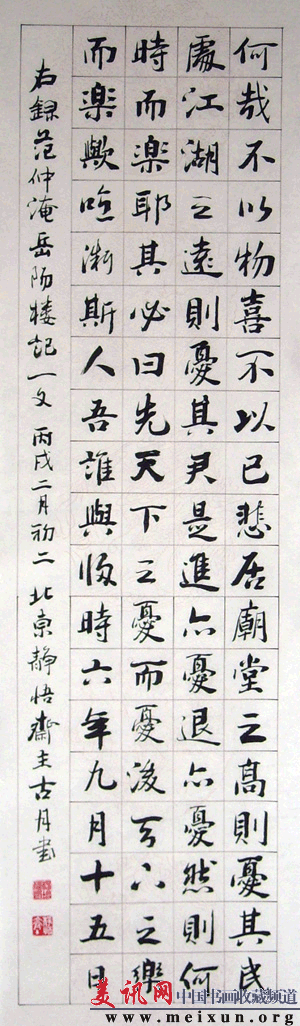 何哉不以物喜不以己悲居廟堂之高則憂其民
處江湖之遠則憂其君是進亦憂退亦憂然則何
時而樂耶其必曰先天下之憂而憂後天下之樂
而樂歟噫微斯人吾誰與歸時六年九月十五日
右錄范仲淹岳阳楼記一文 丙戌二月初二 北京靜悟齋主古月書
美讯网 中国书画收藏频道
www.meixun.org